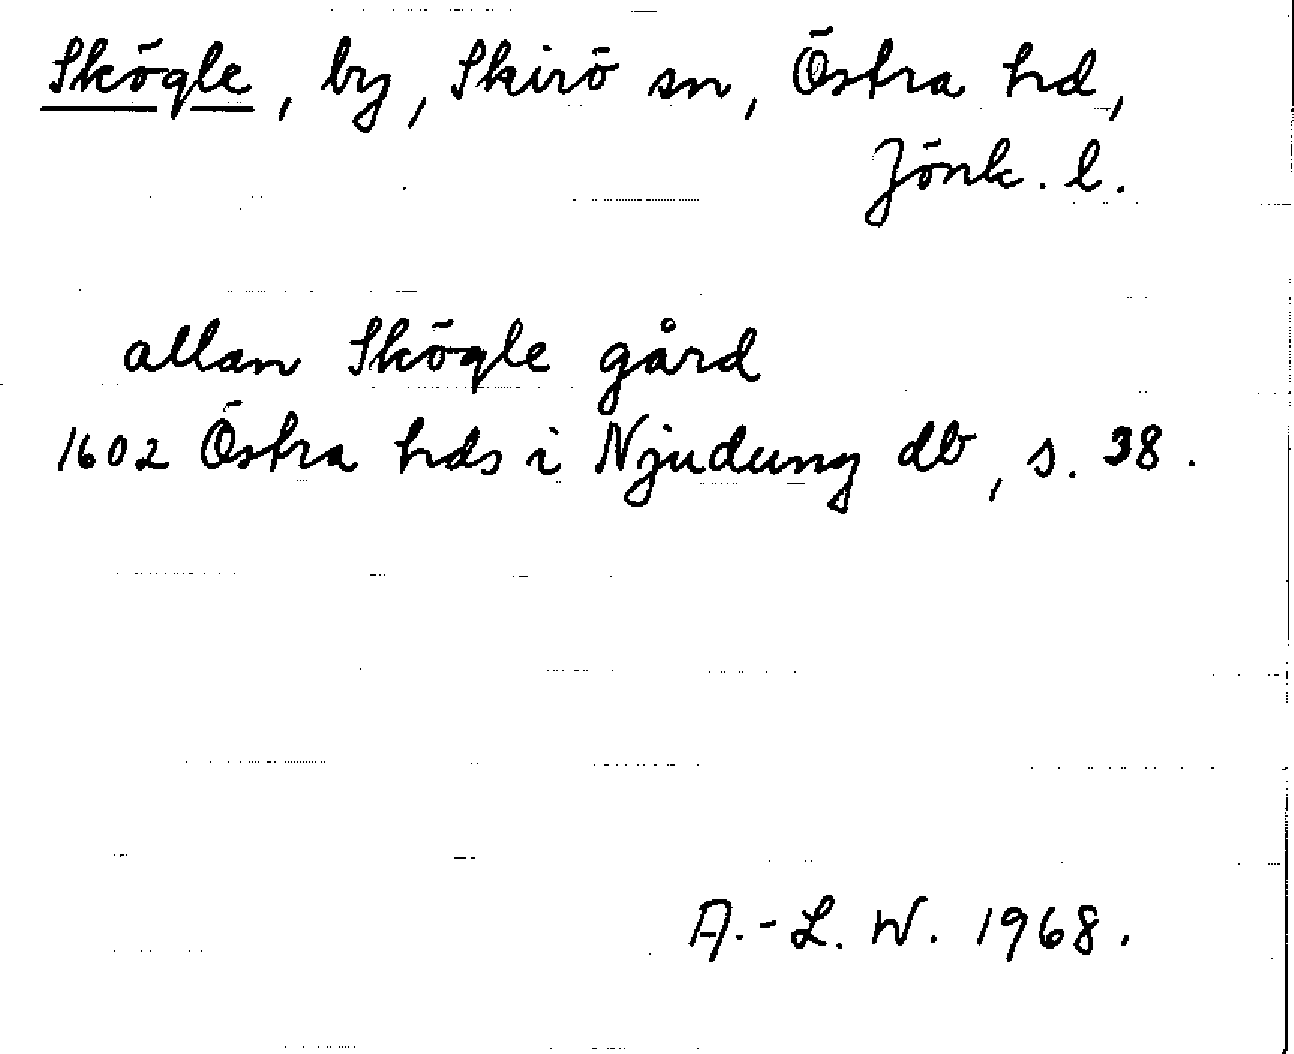 Skögle, by, Skirö sn, Östra hd,
Jönk. l.
allan Skögle gård
1602 Östra hds i Njudung db, s. 38.
A.-L. W. 1968.